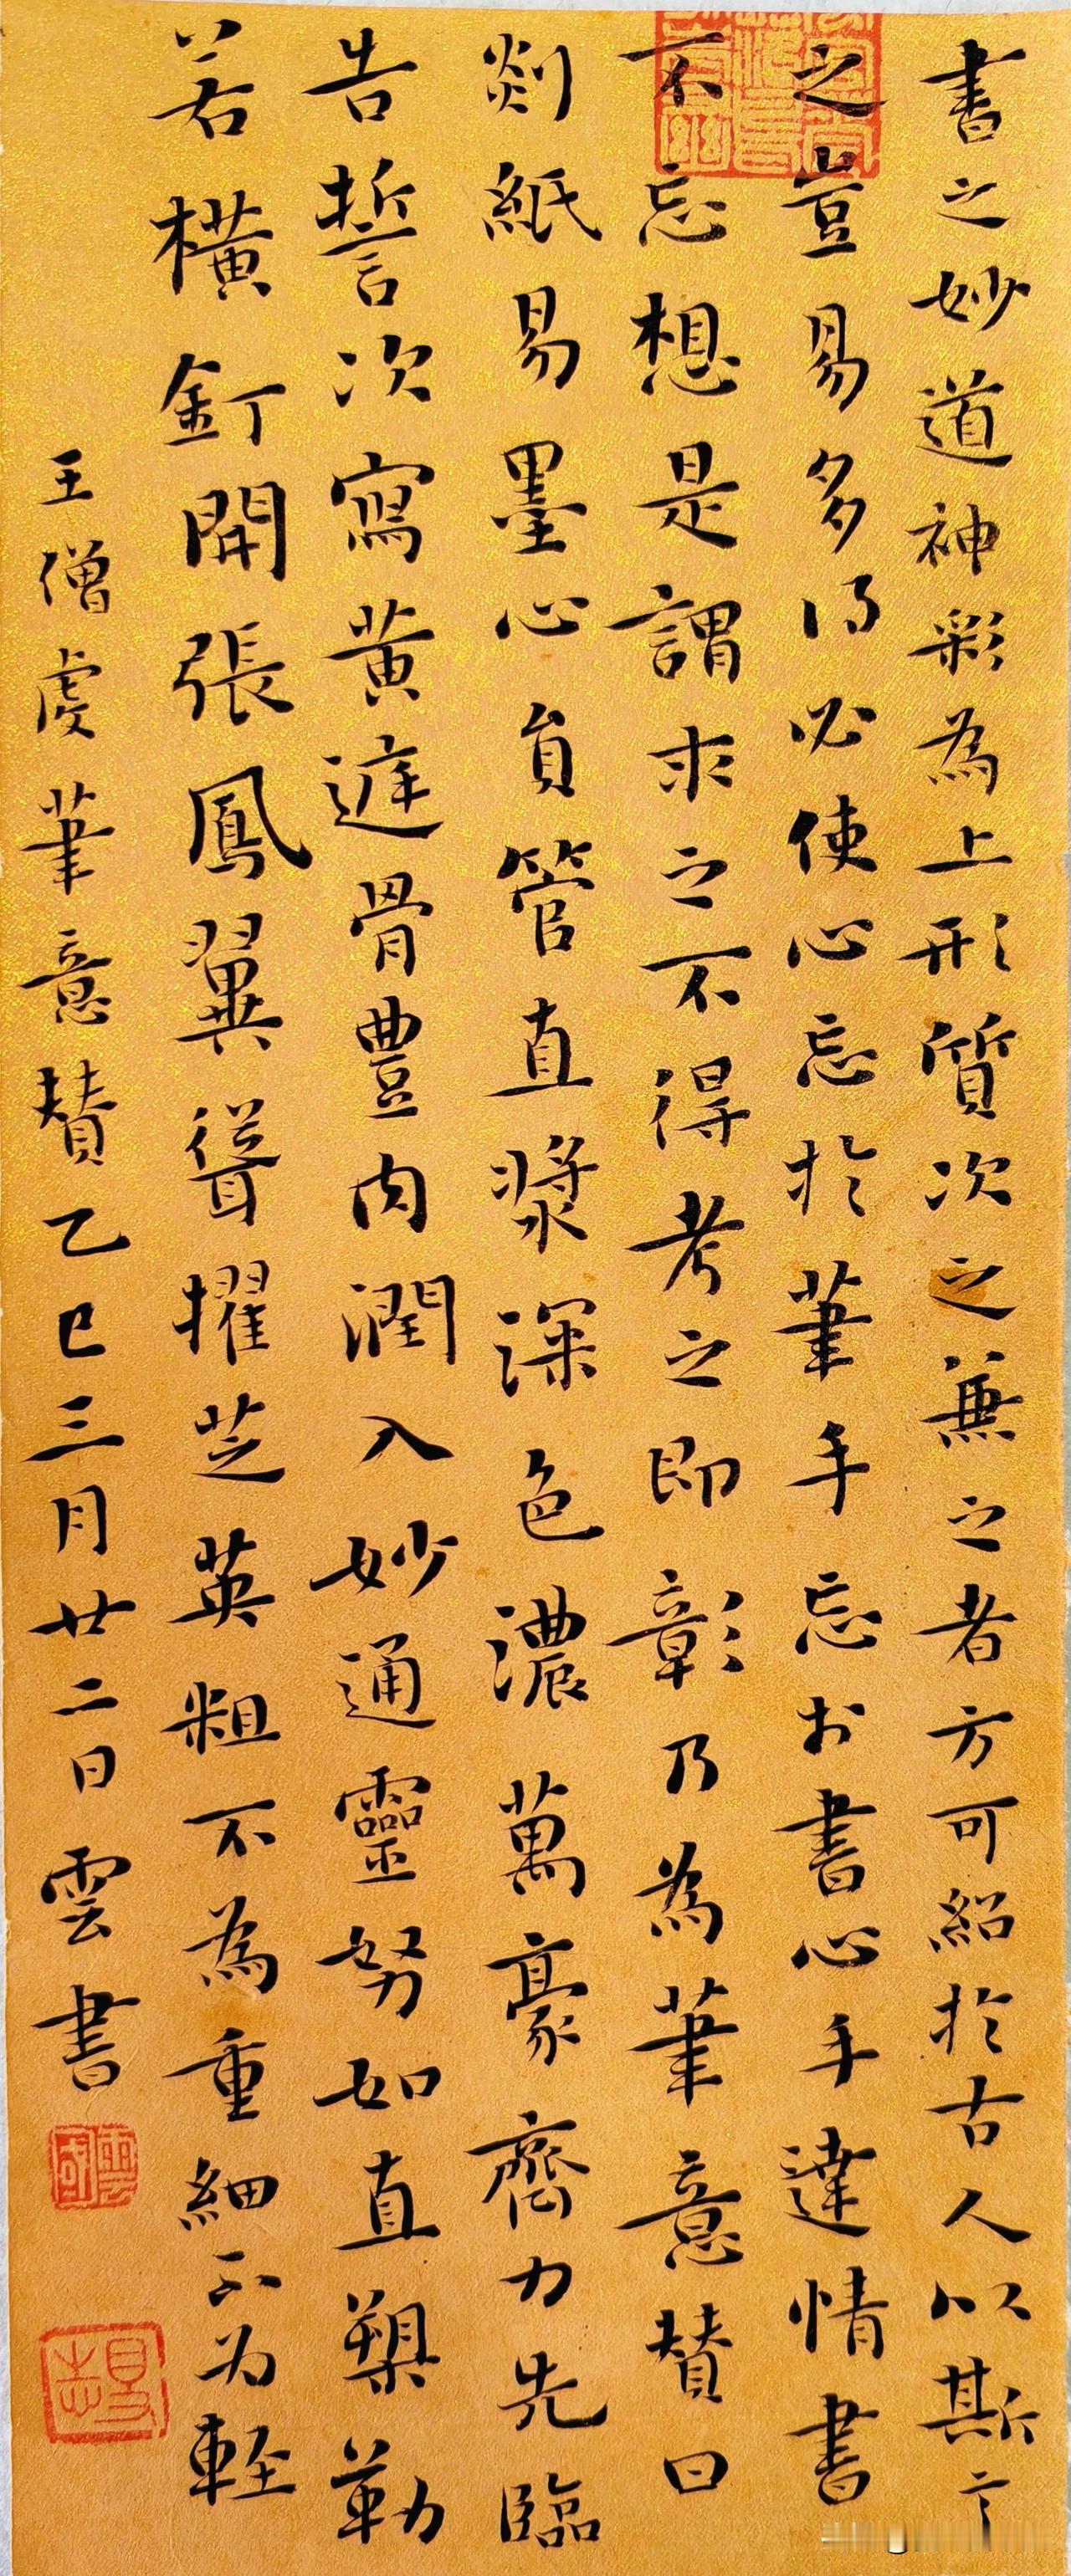 書之妙道神彩為上形質次之兼之者方可紹於古人以斯言
之豈易多得必使心忘於筆手忘於書心手達情書
不忘想是謂求之不得考之即彰乃為筆意贊曰
剡紙易墨心員管直漿深色濃萬豪齊力先臨
告誓次寫黃庭骨豐肉潤入妙通靈努如直槊勒
若橫釘開張鳳翼聳擢芝英粗不為重細不为輕
王僧虔筆意贊乙巳三月廿二日雲書